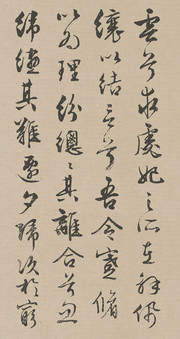 雲兮求虙妃之所在解佩
纕以結言兮吾令蹇脩
以為理紛總々其離合兮忽
緯繣其難遷夕歸次於窮